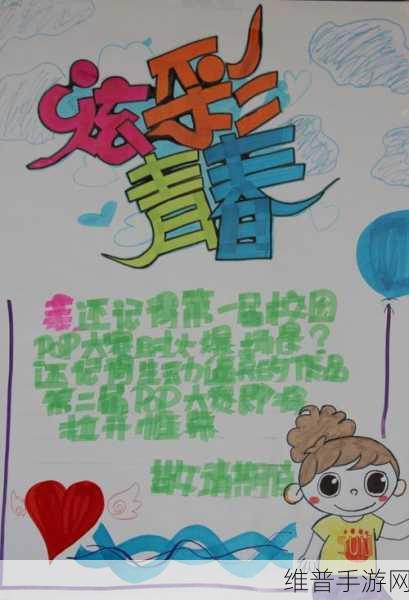 炫彩
青春
亲还记得第一届校园
POP大赛的火爆场景?
还记得生动逼真的作品
第二届POP大赛即将
拉开帷幕
敬请期待
维普手游网